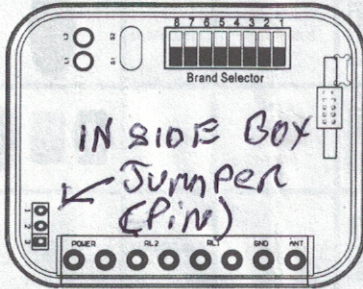 8 7 6 5 4 3 2 1
Brand Selector
IN SIDE BOX
JUMPER
(PiN)
1
2
3
POWER RL2 RL1 GND ANT